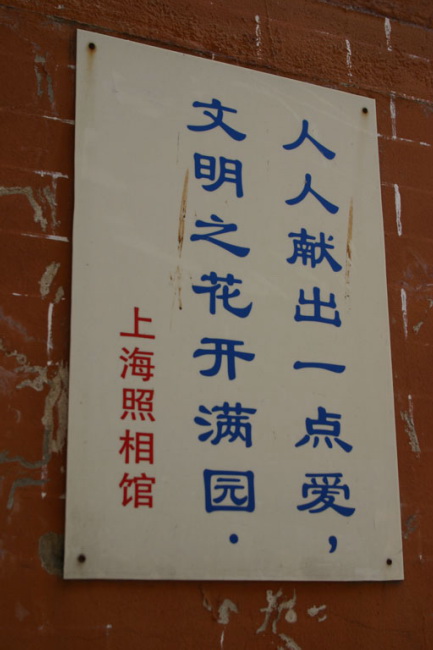 人人献出一点爱，
文明之花开满园.
上海照相馆